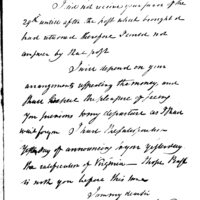 I did not receive your favor of the
29th until after the post which brought it
had returned therefore I could not
answer by that post.
I will depend on your
arrangement respecting the money, and
shall the pleasure of seeing
you previous to my departure as I had
I had the satisfaction
Yesterday of announcing to you
the ratification of Virginia — I hope
is with you before this time
I am my dear Sir